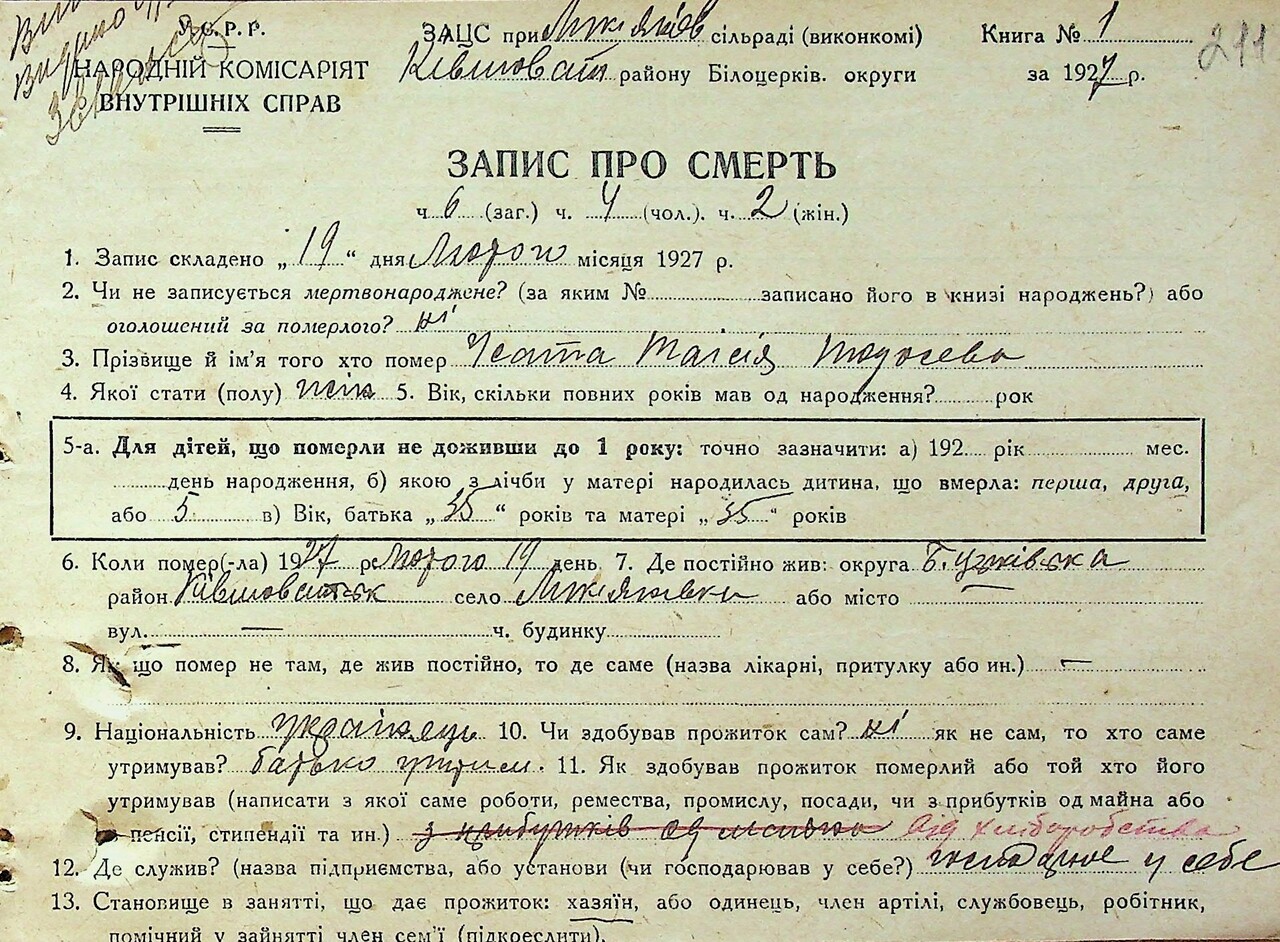 У.С.Р.Р.
НАРОДНІЙ КОМІСАРІЯТ
ВНУТРІШНІХ СПРАВ
ЗАЦС при сільраді (виконкомі)
району Білоцерків. округи
Книга № 1
за 1927 р.
211
ЗАПИС ПРО СМЕРТЬ
ч. 6 (заг.) ч. 4 (чол.). ч. 2 (жін.)
1. Запис складено „19“ дня Лютого місяця 1927 р.
2. Чи не записується мертвонароджене? (за яким № записано його в книзі народжень?) або
оголошений за померлого? ні
3. Прізвище й ім'я того хто помер Таїсія Тодосева
4. Якої стати (полу) жін 5. Вік, скільки повних років мав од народження? рок
5-а. Для дітей, що померли не доживши до 1 року: точно зазначити: а) 192 рік мес.
день народження, б) якою з лічби у матері народилась дитина, що вмерла: перша, друга,
або 5 в) Вік, батька „35“ років та матері „35“ років
6. Коли помер(-ла) 1927 р Лютого 19 день 7. Де постійно жив: округа
район село або місто
вул. — ч. будинку
8. Як що помер не там, де жив постійно, то де саме (назва лікарні, притулку або ин.) —
9. Національність українець 10. Чи здобував прожиток сам? ні як не сам, то хто саме
утримував? батько утрим. 11. Як здобував прожиток померлий або той хто його
утримував (написати з якої саме роботи, ремества, промислу, посади, чи з прибутків од майна або
з пенсії, стипендії та ин.) з прибутків од майна від хліборобства
12. Де служив? (назва підприємства, або установи (чи господарював у себе?) господарює у себе
13. Становище в занятті, що дає прожиток: хазяїн, або одинець, член артілі, службовець, робітник,
помічний у зайнятті член сем'ї (підкреслити).